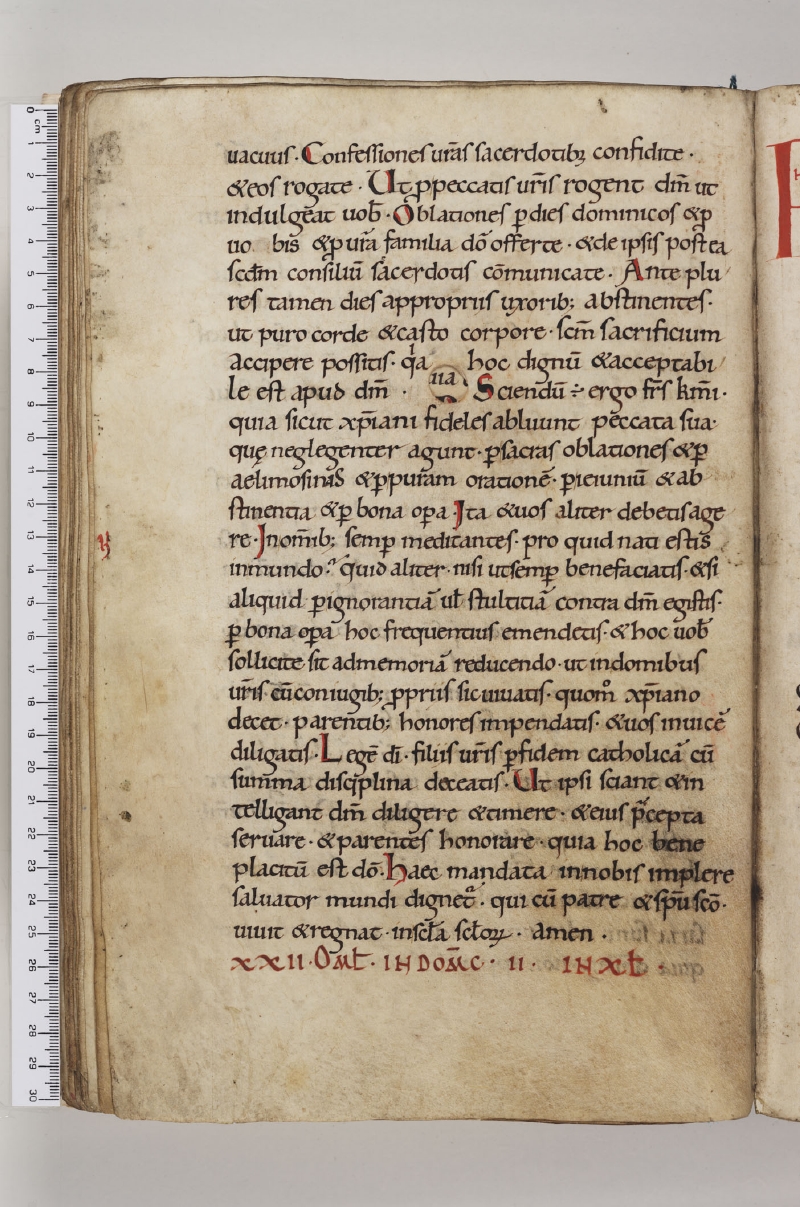 uacuus · Confessiones ur̄as sacerdotib; confidite ·
&eos rogate · Ut ꝓpeccatis ur̄is rogent dm̄ ut
indulgeat uob̄ · Oblationes ꝑdies dominicos &ꝓ
uo bis &ꝓ ur̄a familia dō offerte · &de ipsis postea
scd̄m consiliū sacerdotis cōmunicate · Ante plu
res tamen dies appropriis uxorib; abstinentes ·
ut puro corde &casto corpore · sc̄m sacrificium
accipere possitis · qa hoc dignū &acceptabi
le est apud dm̄ · Sciendū ÷ ergo fr̄s km̄i ·
quia sicut xp̄iani fideles abluunt peccata sua ·
quę neglegenter agunt · ꝑsacras oblationes &ꝑ
aelimosinas &ꝑpuram orationē · ꝑieiuniū &ab
stinentia &ꝑ bona oꝑa Ita &uos aliter debetis age
re · In om̄ib; semꝑ meditantes · pro quid nati estis
inmundo · quid aliter · nisi utsemꝑ benefaciatis · &si
aliquid ꝑignorantiā ul̄ stultitiā contra dm̄ egistis ·
ꝑ bona oꝑa hoc frequentius emendetis · &hoc uob̄
sollicite sit admemoriā reducendo · ut indomibus
ur̄is cū coniugib; ꝓpriis sic uiuatis · quom̊ xp̄iano
decet · parentib; honores impendatis · &uos inuicē
diligatis · Legē dī · filiis ur̄is ꝑfidem catholicā cū
summa disciplina doceatis · Ut ipsi sciant &in
telligant dm̄ diligere &timere · &eius p̄cepta
seruare · &parentes honorare · quia hoc bene
placitū est dō · Haec mandata innobis implere
saluator mundi dignet᷑ · qui cū patre &spū scō ·
uiuit &regnat · insc̄la sc̄loꝝ · amen ·
XXII · OML̄ · IN DOM̄C · II · IN XL̄ ·